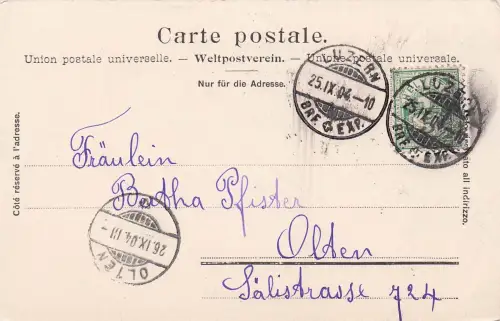 Carte postale.
Union postale universelle. — Weltpostverein. — Unione postale universale.
Nur für die Adresse.
Côté réservé à l'adresse.
LUZERN
25.IX.04.-10
BRF. EXP.
LUZERN
BRF. EXP.
Fräulein
Bertha Pfister
Olten
Sälistrasse 724
OLTEN
26.IX.04.III-
all indirizzo.